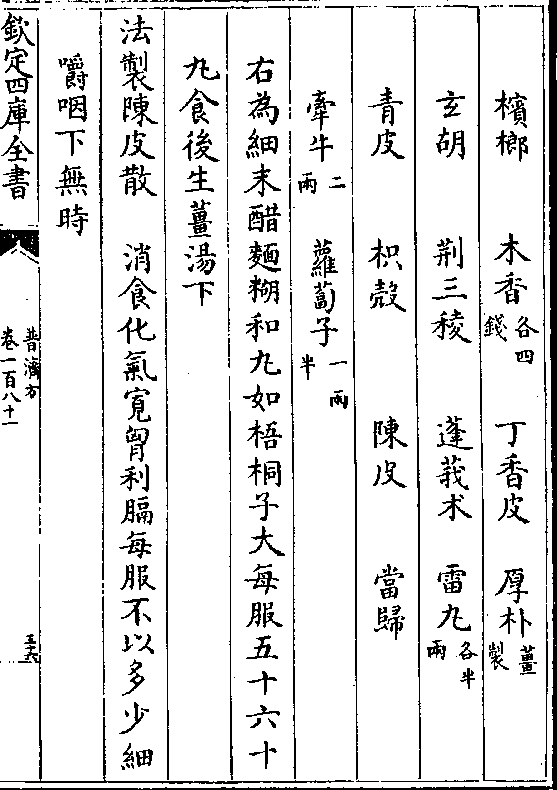 檳榔　木香各四錢　丁香皮　厚朴薑製
玄胡　荆三稜　蓬莪术　雷丸各半兩
青皮　枳殼　陳皮　當歸
牽牛二兩　蘿蔔子一兩半
右為細末醋麵糊和丸如梧桐子大每服五十六十
丸食後生薑湯下
法製陳皮散　消食化氣寛胷利膈每服不以多少細
嚼咽下無時
欽定四庫全書　普濟方卷一百八十一　五十六